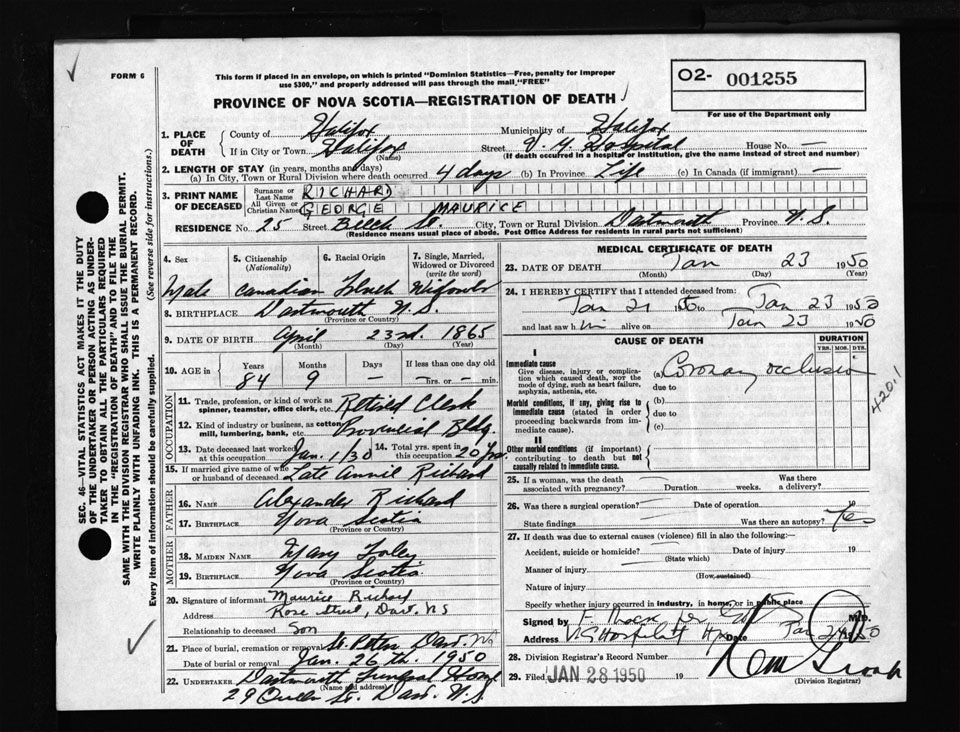 FORM 6
This form if placed in an envelope, on which is printed "Dominion Statistics—Free, penalty for improper
use $300," and properly addressed will pass through the mail "FREE"
O2- 001255
For use of the Department only
PROVINCE OF NOVA SCOTIA—REGISTRATION OF DEATH
1. PLACE OF DEATH
County of Halifax Municipality of Halifax
If in City or Town Halifax Street V. G. Hospital House No. —
(Name) (If death occurred in a hospital or institution, give the name instead of street and number)
2. LENGTH OF STAY (in years, months and days)
(a) In City, Town or Rural Division where death occurred 4 days (b) In Province Life (c) In Canada (if immigrant) —
3. PRINT NAME OF DECEASED
Surname or Last Name RICHARD
All Given or Christian Names GEORGE MAURICE
RESIDENCE No. 25 Street St. City, Town or Rural Division Dartmouth Province N. S.
(Residence means usual place of abode. Post Office Address for residents in rural parts not sufficient)
4. Sex 5. Citizenship (Nationality) 6. Racial Origin 7. Single, Married, Widowed or Divorced (write the word)
Male Canadian French Widower
8. BIRTHPLACE Dartmouth N. S.
(Province or Country)
9. DATE OF BIRTH April 23rd. 1865
(Month) (Day) (Year)
10. AGE in Years Months Days If less than one day old
84 9 — — hrs. or — min.
OCCUPATION
11. Trade, profession or kind of work as spinner, teamster, office clerk, etc. Retired Clerk
12. Kind of industry or business, as cotton mill, lumbering, bank, etc. Provincial Bldg.
13. Date deceased last worked at this occupation Jan. 1/30 14. Total yrs. spent in this occupation 20 Yrs.
15. If married give name of wife or husband of deceased Late Annie Richard
FATHER
16. NAME Alexander Richard
17. BIRTHPLACE Nova Scotia
(Province or Country)
MOTHER
18. MAIDEN NAME Mary Foley
19. BIRTHPLACE Nova Scotia
(Province or Country)
20. Signature of informant Maurice Richard
Address Rose Street, Dart. NS
Relationship to deceased Son
21. Place of burial, cremation or removal St. Peters Dart. NS
Date of burial or removal Jan. 26th. 1950
22. UNDERTAKER Dartmouth Funeral Home
(Name and address)
29 Queen St. Dart. N. S.
MEDICAL CERTIFICATE OF DEATH
23. DATE OF DEATH Jan 23 1950
(Month) (Day) (Year)
24. I HEREBY CERTIFY that I attended deceased from:
Jan 21 50 to Jan 23 1950
and last saw him alive on Jan 23 1950
CAUSE OF DEATH DURATION
YRS. MOS. DYS.
I
Immediate cause
Give disease, injury or complication which caused death, not the mode of dying, such as heart failure, asphyxia, asthenia, etc.
(a) Coronary occlusion
due to
Morbid conditions, if any, giving rise to immediate cause (stated in order proceeding backwards from immediate cause).
(b)
due to
(c)
4201
II
Other morbid conditions (if important) contributing to death but not causally related to immediate cause.
25. If a woman, was the death associated with pregnancy? Duration weeks. Was there a delivery?
26. Was there a surgical operation? Date of operation 19
State findings Was there an autopsy? Yes
27. If death was due to external causes (violence) fill in also the following:—
Accident, suicide or homicide? Date of injury 19
(State which)
Manner of injury
(How sustained)
Nature of injury
Specify whether injury occurred in industry, in home, or in public place
Signed by M.D.
Address V G Hospital Hx Date Jan 24 1950
28. Division Registrar's Record Number
29. Filed JAN 28 1950 19
(Division Registrar)
SEC. 46—VITAL STATISTICS ACT MAKES IT THE DUTY
OF THE UNDERTAKER OR PERSON ACTING AS UNDER-
TAKER TO OBTAIN ALL THE PARTICULARS REQUIRED
IN THE "REGISTRATION OF DEATH" AND TO FILE THE
SAME WITH THE DIVISION REGISTRAR WHO SHALL ISSUE THE BURIAL PERMIT.
WRITE PLAINLY WITH UNFADING INK. THIS IS A PERMANENT RECORD.
Every item of information should be carefully supplied. (See reverse side for instructions.)